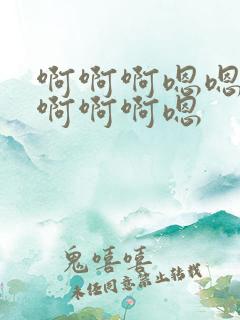 啊啊啊嗯嗯
啊啊啊嗯
鬼嘻嘻
未经同意禁止转载